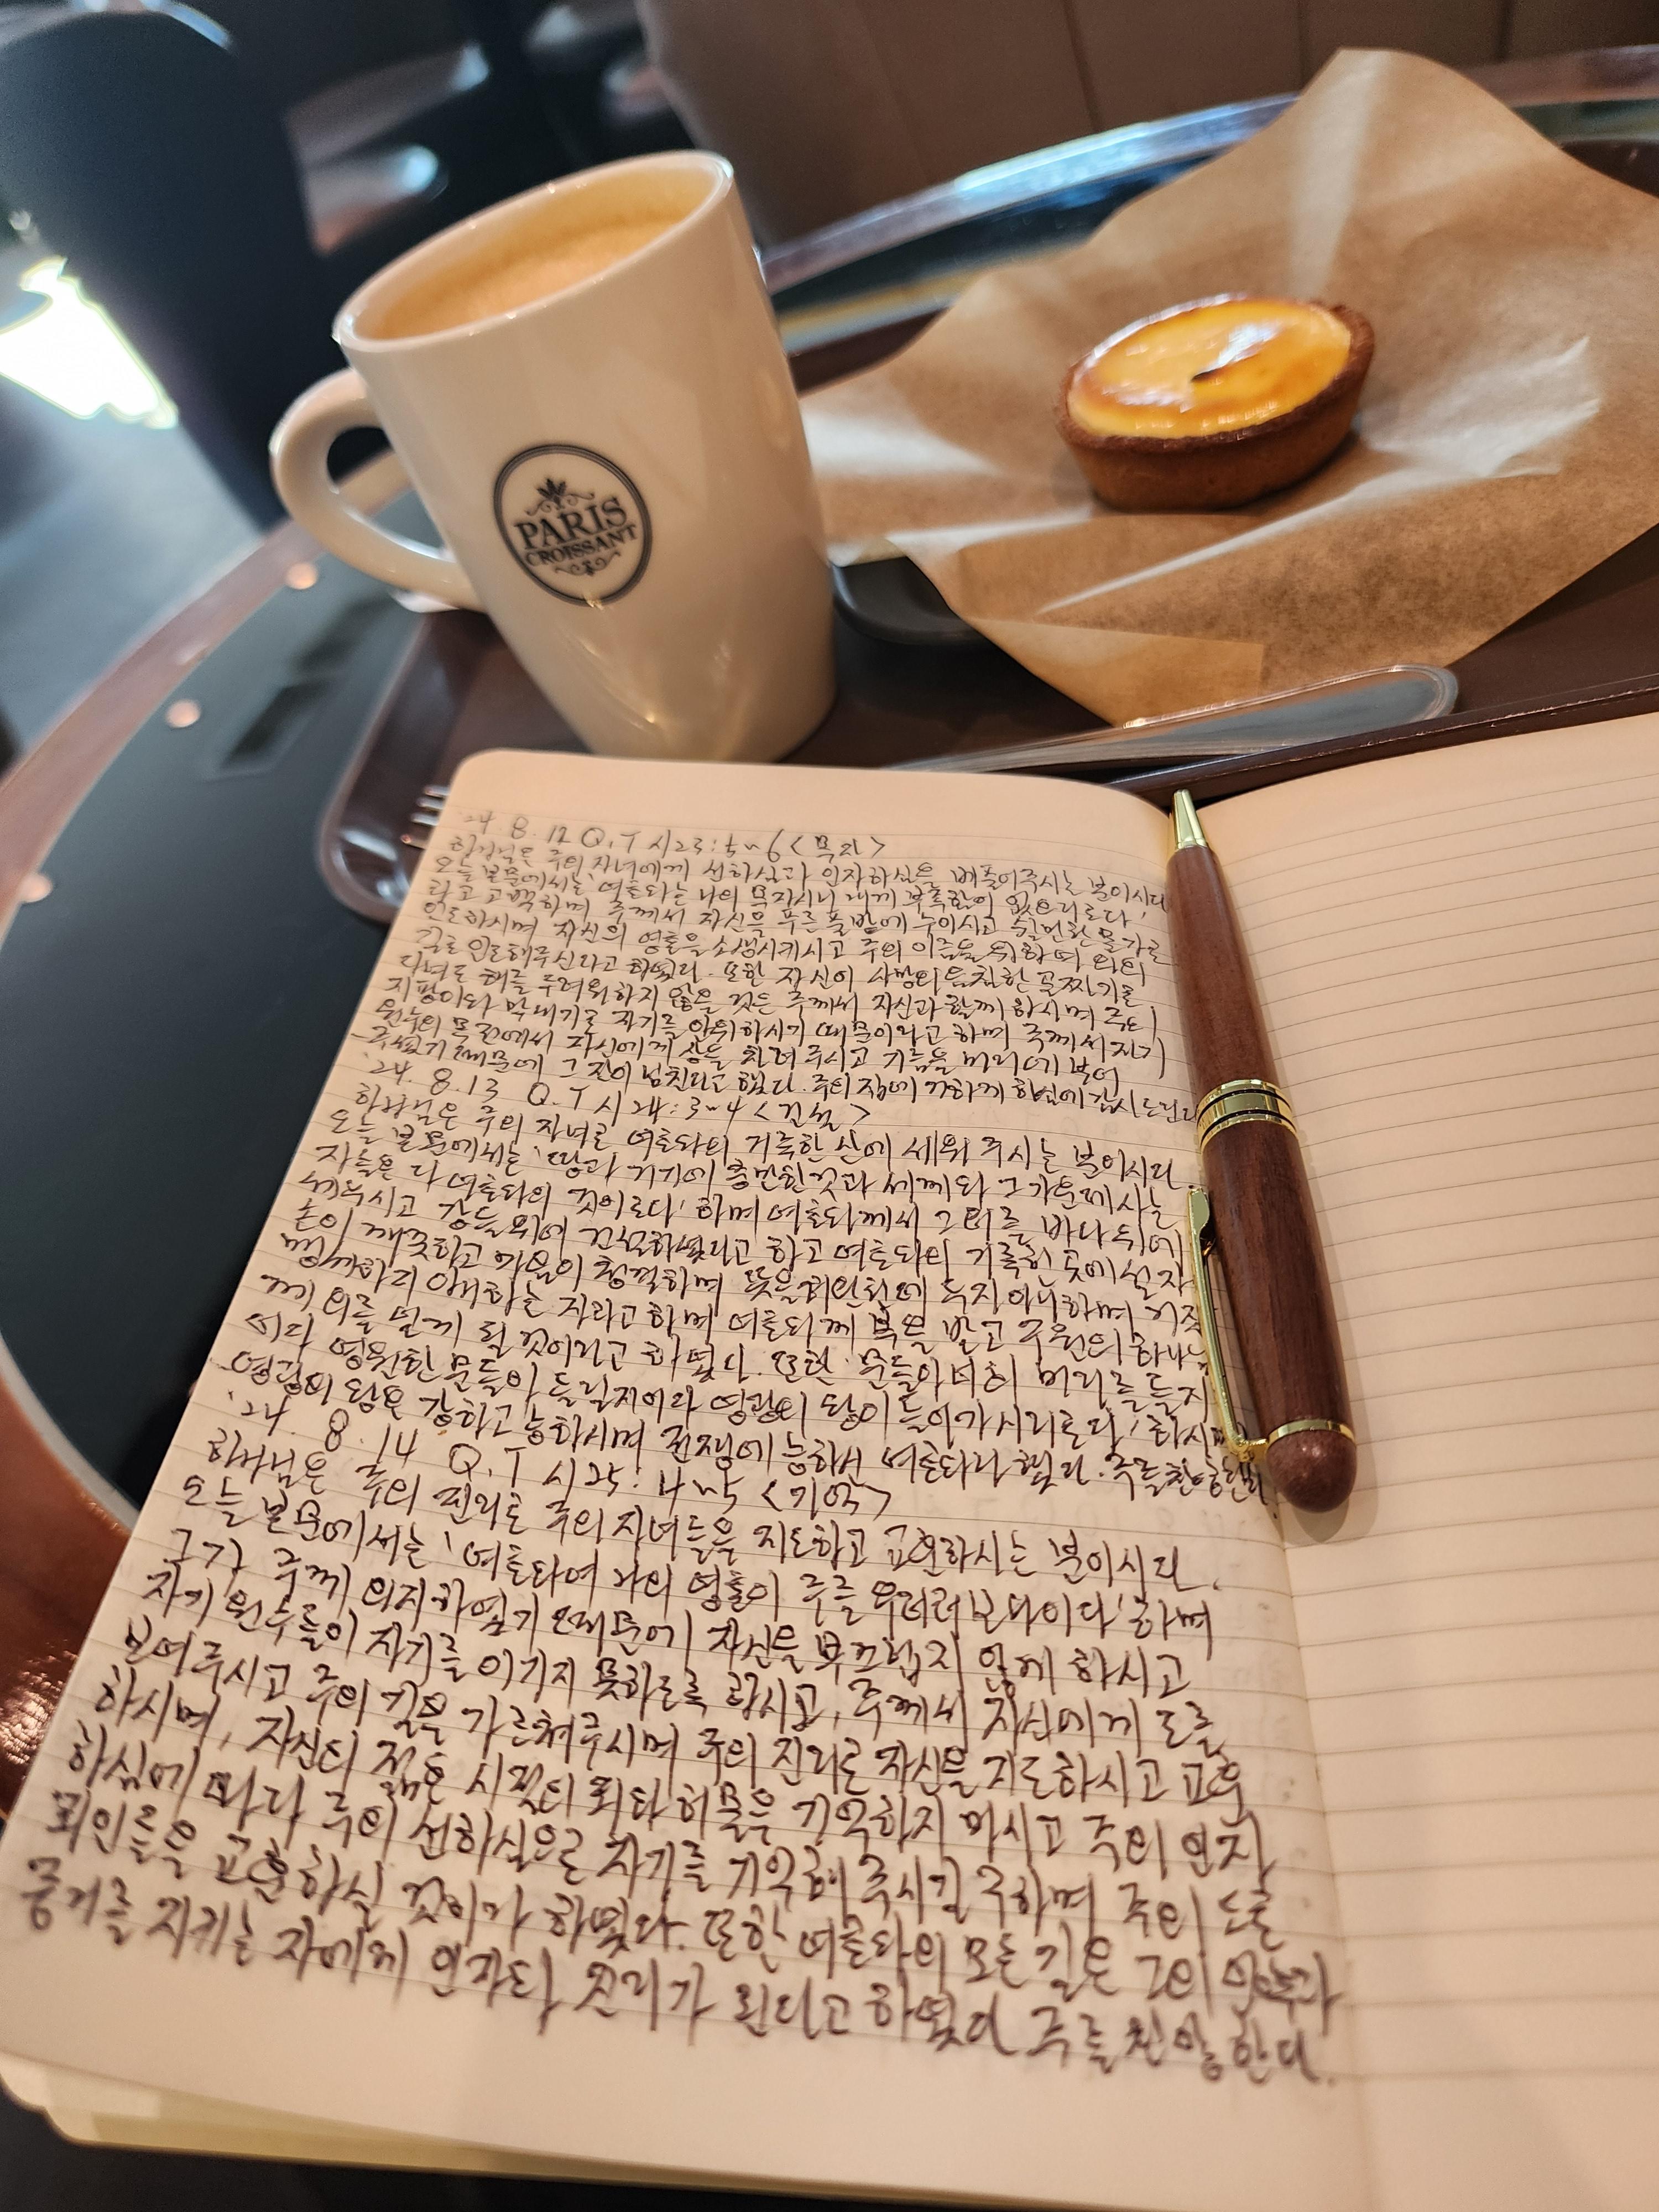 PARIS
CROISSANT
'24. 8. 12 Q.T 시23:5~6 <목자>
하나님은 주의 자녀에게 선하심과 인자하심을 베풀어주시는 분이시다
오늘 본문에서는 '여호와는 나의 목자시니 내게 부족함이 없으리로다'
라고 고백하며 주께서 자신을 푸른 풀밭에 누이시고 쉴만한 물가로
인도하시며 자신의 영혼을 소생시키시고 주의 이름을 위하여 의의
길로 인도해주신다고 하였다. 또한 자신이 사망의 음침한 골짜기로
다녀도 해를 두려워하지 않을 것은 주께서 자신과 함께 하시며 주의
지팡이와 막대기로 자기를 안위하시기 때문이라고 하며 주께서 자기
원수의 목전에서 자신에게 상을 차려 주시고 기름을 머리에 부어
주셨기 때문에 그 잔이 넘친다고 했다. 주의 집에 거하게 하심에 감사드린다
'24. 8. 13 Q.T 시24:3~4 <건설>
하나님은 주의 자녀로 여호와의 거룩한 산에 세워 주시는 분이시다.
오늘 본문에서는 '땅과 거기에 충만한 것과 세계와 그 가운데 사는
자들은 다 여호와의 것이로다' 하며 여호와께서 그 터를 바다 위에
세우시고 강들 위에 건설하셨다고 하고 여호와의 거룩한 곳에 설 자
손이 깨끗하고 마음이 청결하며 뜻을 허탄한데 두지 아니하며 거짓
맹세하지 아니하는 자라고 하며 여호와께 복을 받고 구원의 하나님
께 의를 얻게 될 것이라고 하였다. 또한 '문들아 너희 머리를 들지
어다 영원한 문들아 들릴지어다 영광의 왕이 들어가시리로다' 하시며
영광의 왕은 강하고 능하시며 전쟁에 능하신 여호와라 했다. 주를 찬양한다
'24. 8. 14 Q.T 시25:4~5 <기억>
하나님은 주의 진리로 주의 자녀들을 지도하고 교훈하시는 분이시다.
오늘 본문에서는 '여호와여 나의 영혼이 주를 우러러보나이다' 하며
그가 주께 의지하였기 때문에 자신을 부끄럽지 않게 하시고
자기 원수들이 자기를 이기지 못하도록 하시고, 주께서 자신에게 도를
보여주시고 주의 길을 가르쳐주시며 주의 진리로 자신을 지도하시고 교훈
하시며, 자신의 젊은 시절의 죄와 허물을 기억하지 마시고 주의 인자
하심에 따라 주의 선하심으로 자기를 기억해 주시길 구하며 주의 도로
죄인들을 교훈하실 것이라 하였다. 또한 여호와의 모든 길은 그의 언약과
증거를 지키는 자에게 인자와 진리가 된다고 하였다 주를 찬양한다.